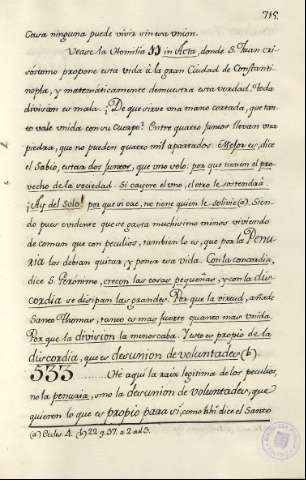 715.
Causa ninguna puede vivir sin esa union.
Vease la Homilia 33 in Acta, donde S. Juan Cri-
sóstomo propone esta vida à la gran Ciudad de Constanti-
nopla, y matemáticamente demuestra esta verdad. Toda
division es mala. ¿De que sirve una mano cortada, que tan-
to vale unida con su cuerpo? Entre quatro juntos llevan una
piedra, que no pueden quatro mil apartados. Mejor es, dice
el Sabio, estar dos juntos, que uno solo: por que tienen el pro-
vecho de la sociedad. Si cayere el uno, el otro le sostendrá.
¡Ay del Solo! por que si cae, no tiene quien le solivie (a). Sien-
do pues evidente que se gasta muchisimo menos viviendo
de comun que con peculios, tambien lo es, que por la Penu-
ria los debian quitar, y poner esta vida. Con la concordia,
dice S. Gerónimo, crecen las cosas pequeñas, y con la dis-
cordia se disipan las grandes. Por que la virtud, añade
Santo Thomas, tanto es mas fuerte quanto mas unida.
Por que la division la menoscaba. Y esto es propio de la
discordia, que es desunion de voluntades (b).
533 ........ Hé aqui la raiz legitima de los peculios,
no la penuria, sino la desunion de voluntades, que
quieren lo que es propio para si, como ahí dice el Santo
(a) Eccles. 4. (b) 22 q. 37. a 2 ad 3.